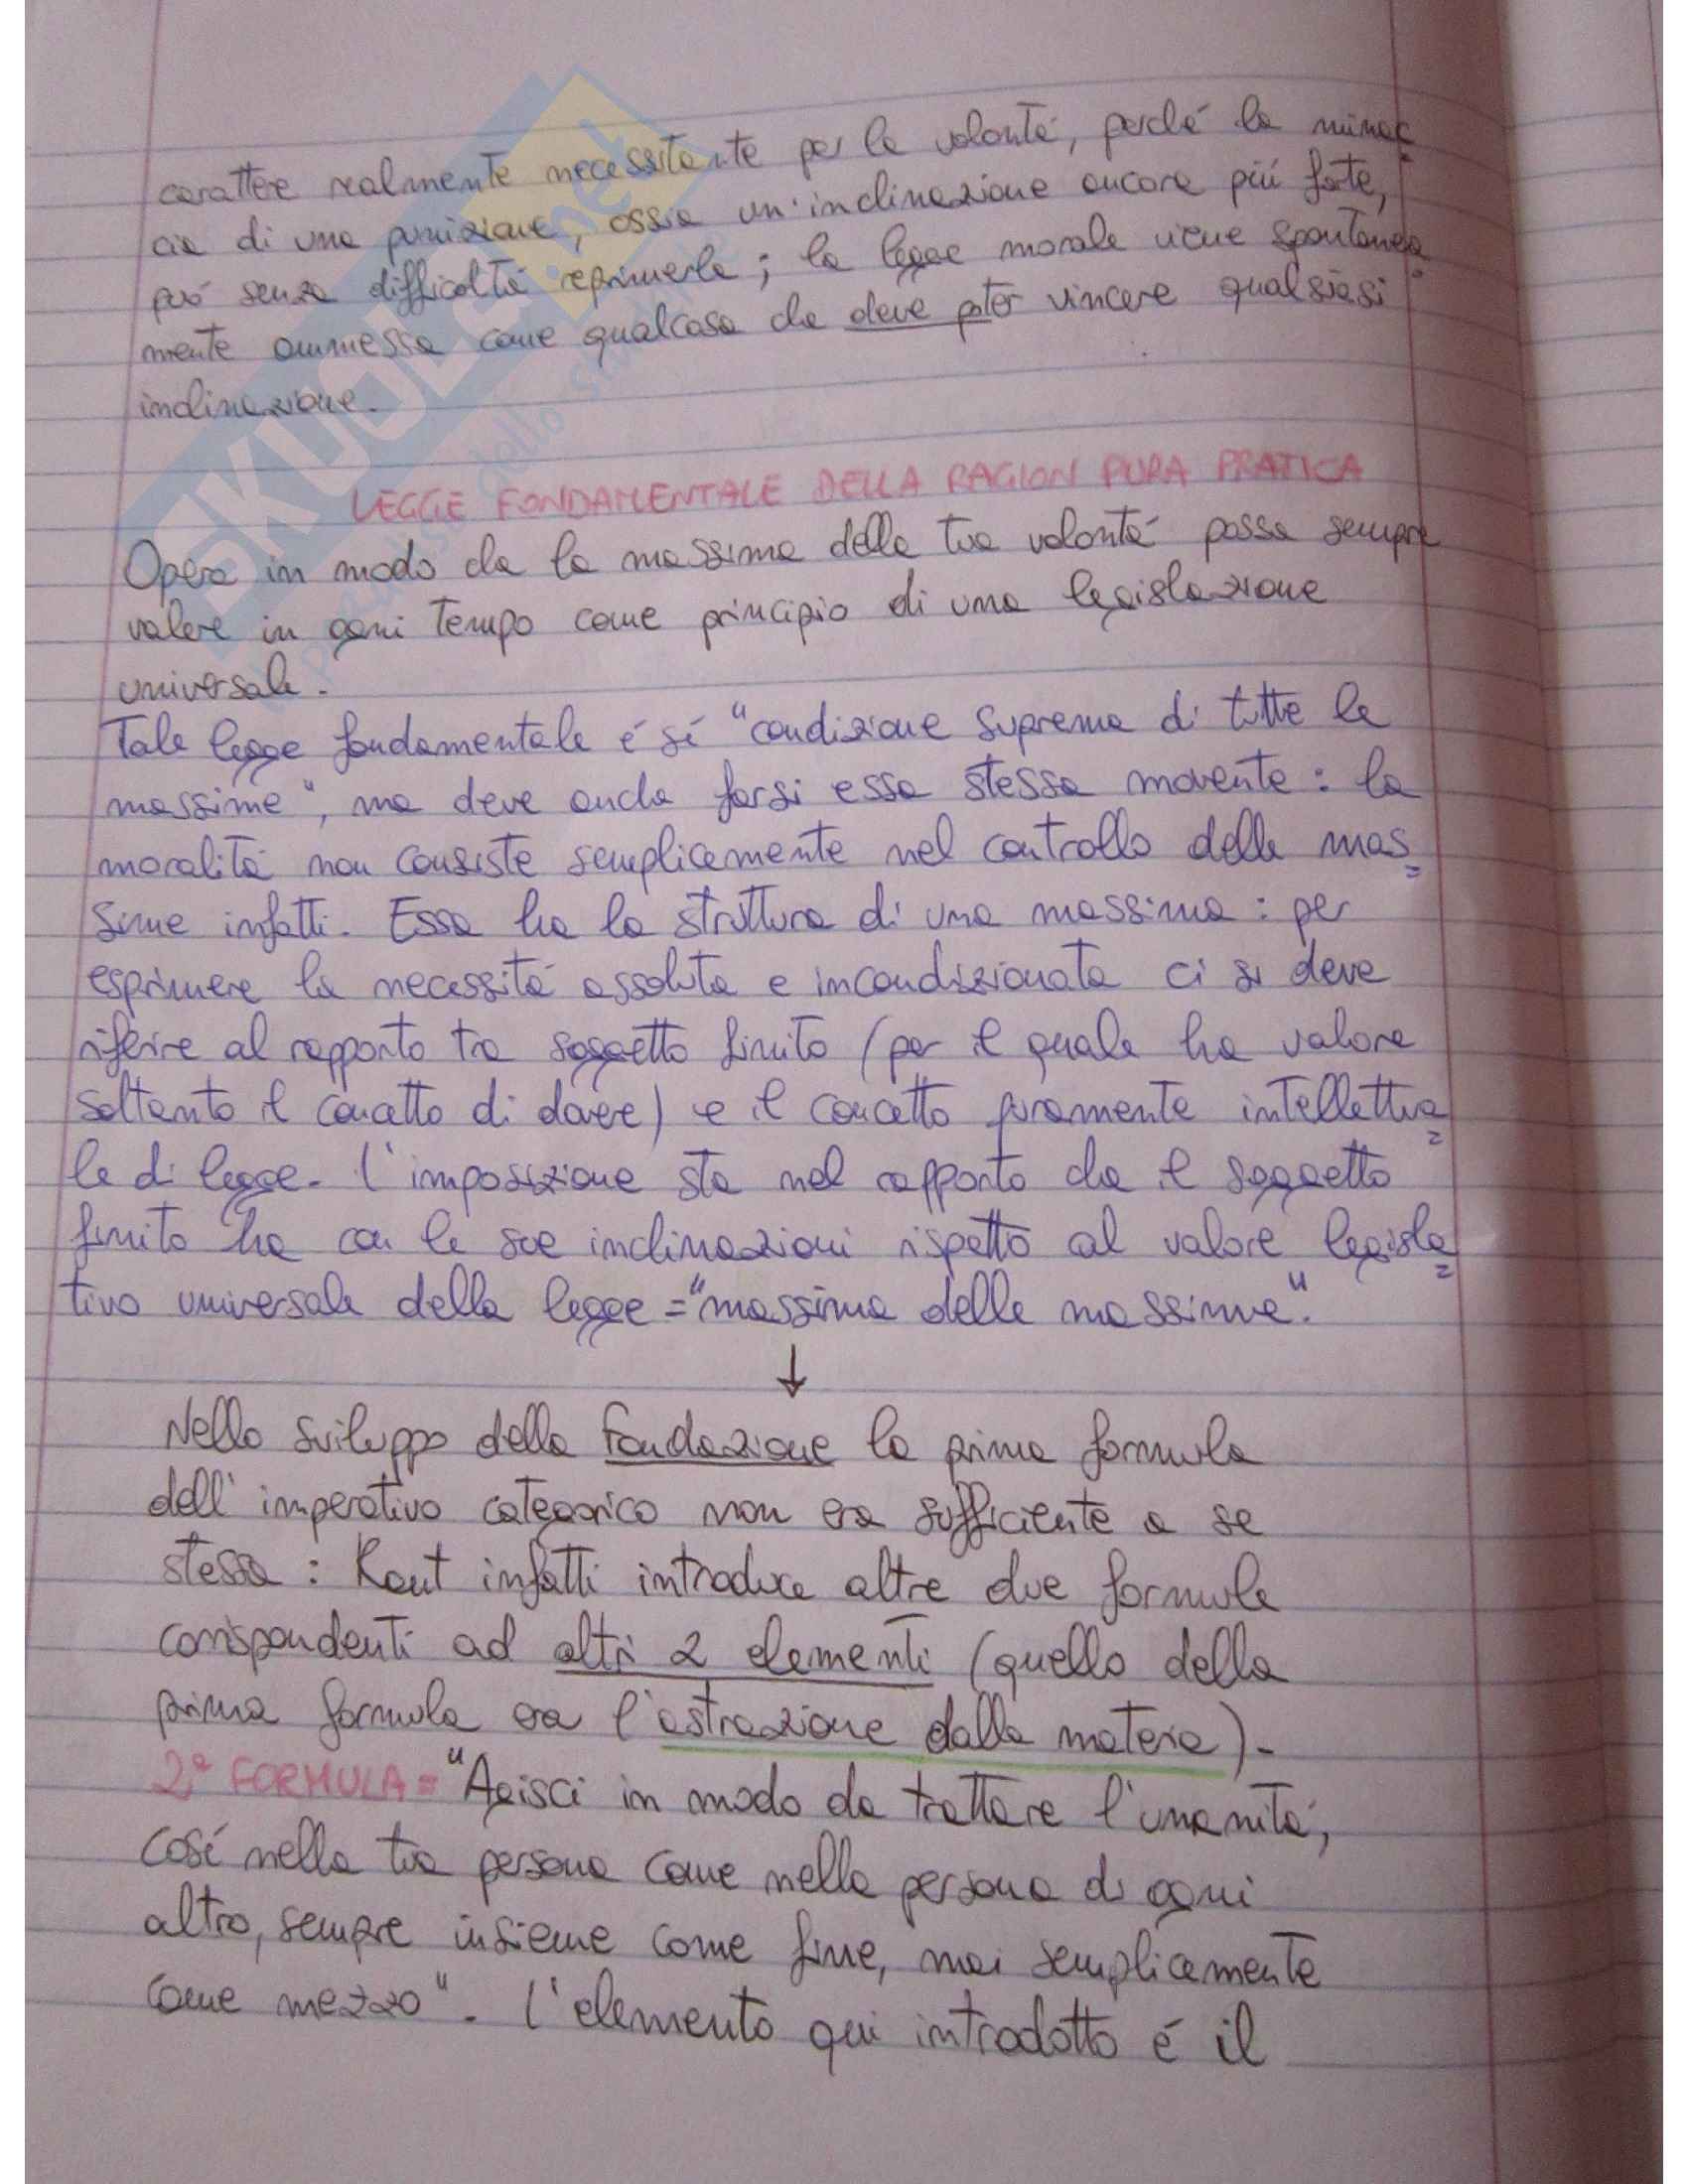 carattere realmente necessitante per la volontá, perché la minac=
cia di una punizione, ossia un'inclinazione ancora piú forte,
puó senza difficoltá reprimerla; la legge morale viene spontanea=
mente ammessa come qualcosa che deve poter vincere qualsiasi
inclinazione.
LEGGE FONDAMENTALE DELLA RAGION PURA PRATICA
Opera in modo che la massima della tua volontá possa sempre
valere in ogni tempo come principio di una legislazione
universale.
Tale legge fondamentale é sí "condizione suprema di tutte le
massime", ma deve anche farsi essa stessa movente: la
moralitá non consiste semplicemente nel controllo delle mas=
sime infatti. Essa ha la struttura di una massima: per
esprimere la necessitá assoluta e incondizionata ci si deve
riferire al rapporto tra soggetto finito (per il quale ha valore
soltanto il concetto di dovere) e il concetto puramente intellettua=
le di legge. L'imposizione sta nel rapporto che il soggetto
finito ha con le sue inclinazioni rispetto al valore legisla=
tivo universale della legge = "massima delle massime".
↓
Nello sviluppo della Fondazione la prima formula
dell'imperativo categorico non era sufficiente a se
stessa: Kant infatti introduce altre due formule
corrispondenti ad altri 2 elementi (quello della
prima formula era l'astrazione dalla materia).
2ª FORMULA = "Agisci in modo da trattare l'umanitá,
cosí nella tua persona come nella persona di ogni
altro, sempre insieme come fine, mai semplicemente
come mezzo". L'elemento qui introdotto é il
SKUOLA.net
il paradiso dello studente